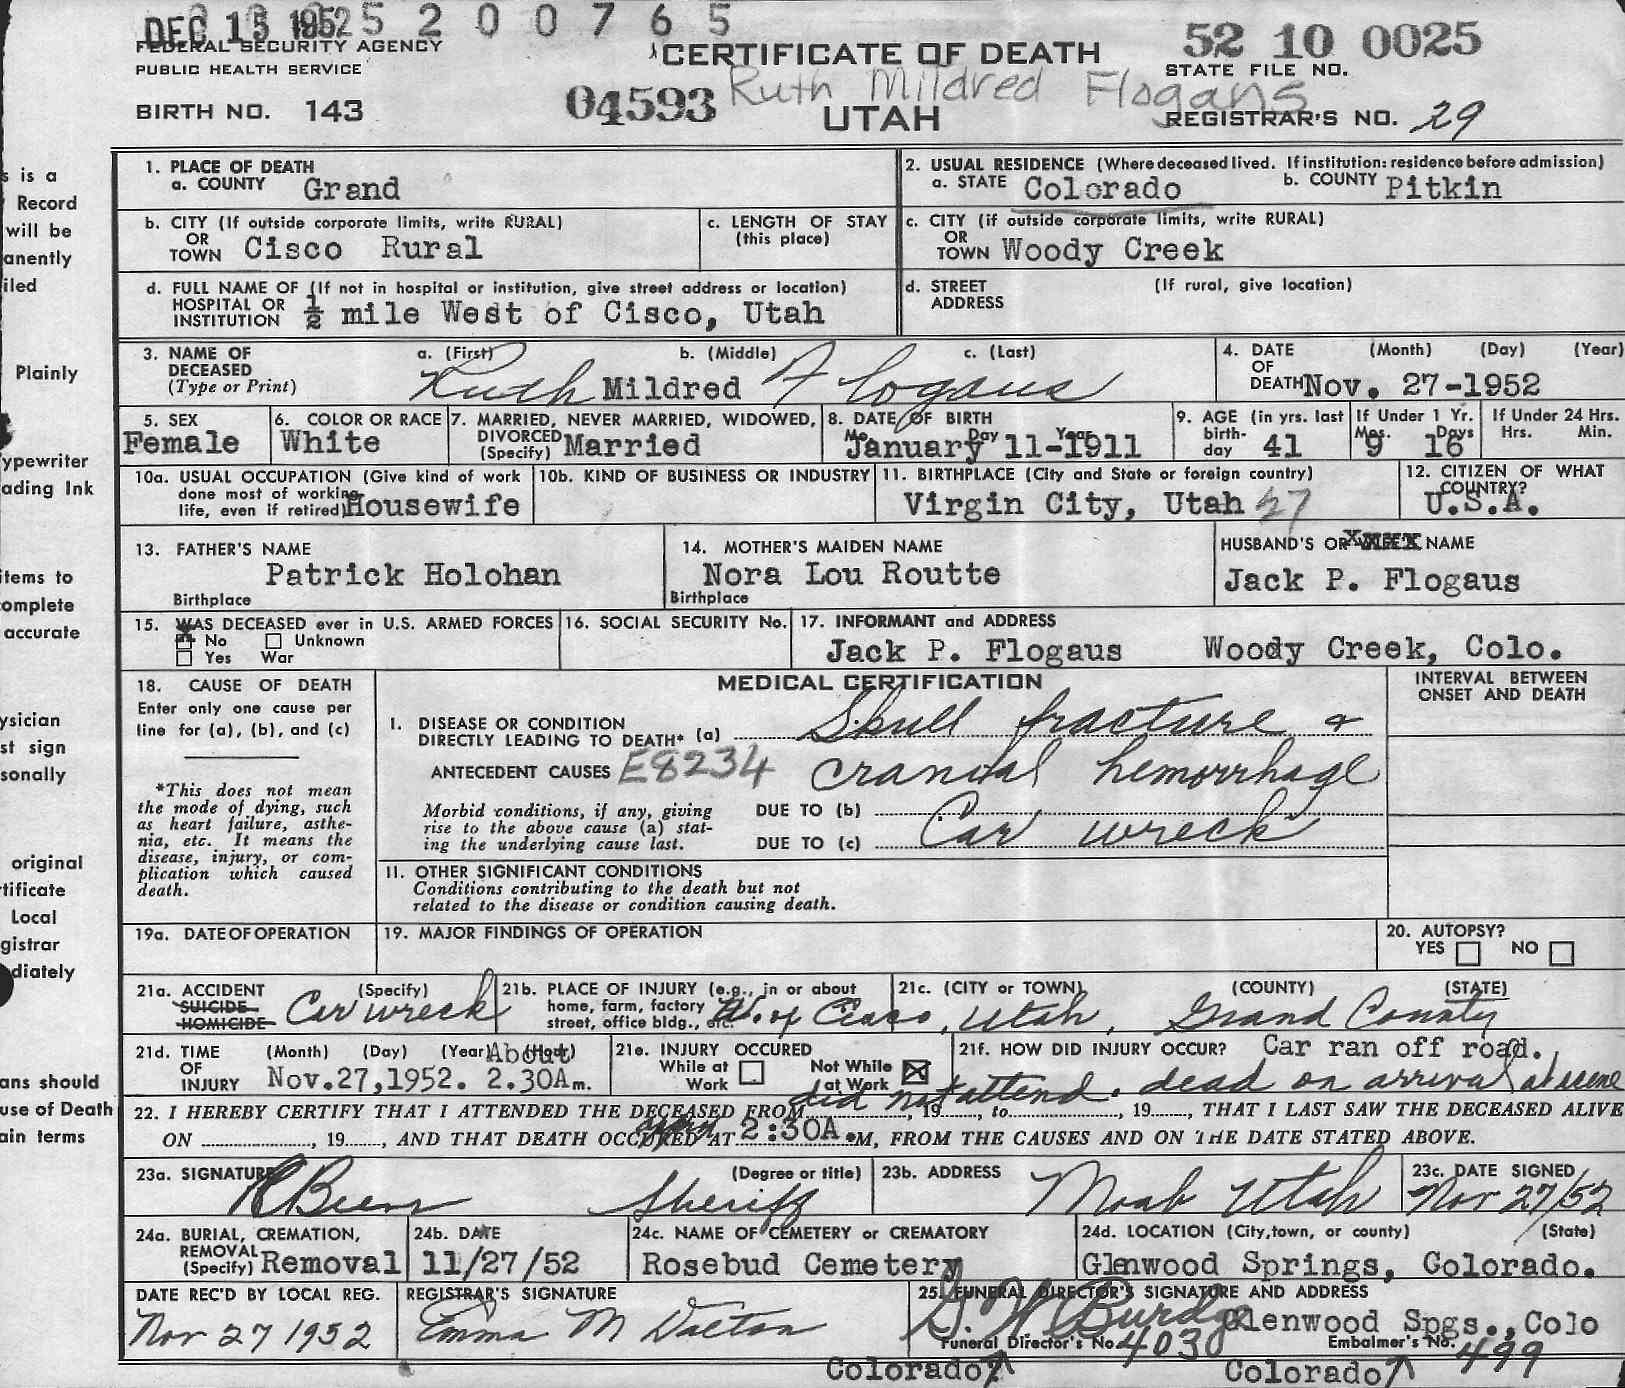 DEC 15 1952 5 2 0 0 7 6 5
FEDERAL SECURITY AGENCY
PUBLIC HEALTH SERVICE
CERTIFICATE OF DEATH
52 10 0025
STATE FILE NO.
Ruth Mildred Flogans
BIRTH NO. 143
04593
UTAH
REGISTRAR'S NO. 29
s is a
Record
will be
anently
iled
Plainly
ypewriter
ading Ink
items to
omplete
accurate
ysician
st sign
sonally
original
rtificate
Local
gistrar
diately
ans should
use of Death
ain terms
1. PLACE OF DEATH
a. COUNTY Grand
2. USUAL RESIDENCE (Where deceased lived. If institution: residence before admission)
a. STATE Colorado b. COUNTY Pitkin
b. CITY (If outside corporate limits, write RURAL)
OR
TOWN Cisco Rural
c. LENGTH OF STAY
(this place)
c. CITY (if outside corporate limits, write RURAL)
OR
TOWN Woody Creek
d. FULL NAME OF (If not in hospital or institution, give street address or location)
HOSPITAL OR
INSTITUTION ½ mile West of Cisco, Utah
d. STREET (If rural, give location)
ADDRESS
3. NAME OF a. (First) b. (Middle) c. (Last)
DECEASED
(Type or Print) Ruth Mildred Flogaus
4. DATE (Month) (Day) (Year)
OF
DEATH Nov. 27-1952
5. SEX
Female
6. COLOR OR RACE
White
7. MARRIED, NEVER MARRIED, WIDOWED,
DIVORCED
(Specify) Married
8. DATE OF BIRTH
Mo. Day Year
January 11-1911
9. AGE (in yrs. last
birth-
day 41
If Under 1 Yr.
Mos. Days
9 16
If Under 24 Hrs.
Hrs. Min.
10a. USUAL OCCUPATION (Give kind of work
done most of working
life, even if retired) Housewife
10b. KIND OF BUSINESS OR INDUSTRY
11. BIRTHPLACE (City and State or foreign country)
Virgin City, Utah 27
12. CITIZEN OF WHAT
COUNTRY?
U.S.A.
13. FATHER'S NAME
Patrick Holohan
Birthplace
14. MOTHER'S MAIDEN NAME
Nora Lou Routte
Birthplace
HUSBAND'S OR XXXXXX NAME
Jack P. Flogaus
15. WAS DECEASED ever in U.S. ARMED FORCES
No Unknown
Yes War
16. SOCIAL SECURITY No.
17. INFORMANT and ADDRESS
Jack P. Flogaus Woody Creek, Colo.
18. CAUSE OF DEATH
Enter only one cause per
line for (a), (b), and (c)
*This does not mean
the mode of dying, such
as heart failure, asthe-
nia, etc. It means the
disease, injury, or com-
plication which caused
death.
MEDICAL CERTIFICATION
INTERVAL BETWEEN
ONSET AND DEATH
I. DISEASE OR CONDITION
DIRECTLY LEADING TO DEATH* (a) Skull fracture &
ANTECEDENT CAUSES E8234 cranial hemorrhage
Morbid conditions, if any, giving
rise to the above cause (a) stat-
ing the underlying cause last.
DUE TO (b)
DUE TO (c) Car wreck
11. OTHER SIGNIFICANT CONDITIONS
Conditions contributing to the death but not
related to the disease or condition causing death.
19a. DATE OF OPERATION
19. MAJOR FINDINGS OF OPERATION
20. AUTOPSY?
YES NO
21a. ACCIDENT (Specify)
SUICIDE
HOMICIDE Car wreck
21b. PLACE OF INJURY (e.g., in or about
home, farm, factory
street, office bldg., etc. W. of Cisco, Utah, Grand County
21c. (CITY or TOWN) (COUNTY) (STATE)
21d. TIME (Month) (Day) (Year) (Hour) About
OF
INJURY Nov.27,1952. 2.30A m.
21e. INJURY OCCURED
While at Work
Not While at Work
21f. HOW DID INJURY OCCUR? Car ran off road.
did not attend. dead on arrival at scene
22. I HEREBY CERTIFY THAT I ATTENDED THE DECEASED FROM , 19 , to , 19 , THAT I LAST SAW THE DECEASED ALIVE
ON , 19 , AND THAT DEATH OCCURED AT 2:30A.M, FROM THE CAUSES AND ON THE DATE STATED ABOVE.
23a. SIGNATURE (Degree or title)
Sheriff
23b. ADDRESS
Moab Utah
23c. DATE SIGNED
Nov 27/52
24a. BURIAL, CREMATION,
REMOVAL
(Specify) Removal
24b. DATE
11/27/52
24c. NAME OF CEMETERY or CREMATORY
Rosebud Cemetery
24d. LOCATION (City, town, or county) (State)
Glenwood Springs, Colorado.
DATE REC'D BY LOCAL REG.
Nov 27 1952
REGISTRAR'S SIGNATURE
Emma M Dalton
25. FUNERAL DIRECTOR'S SIGNATURE AND ADDRESS
Glenwood Spgs., Colo
Funeral Director's No. 4030
Embalmer's No. 499
Colorado Colorado